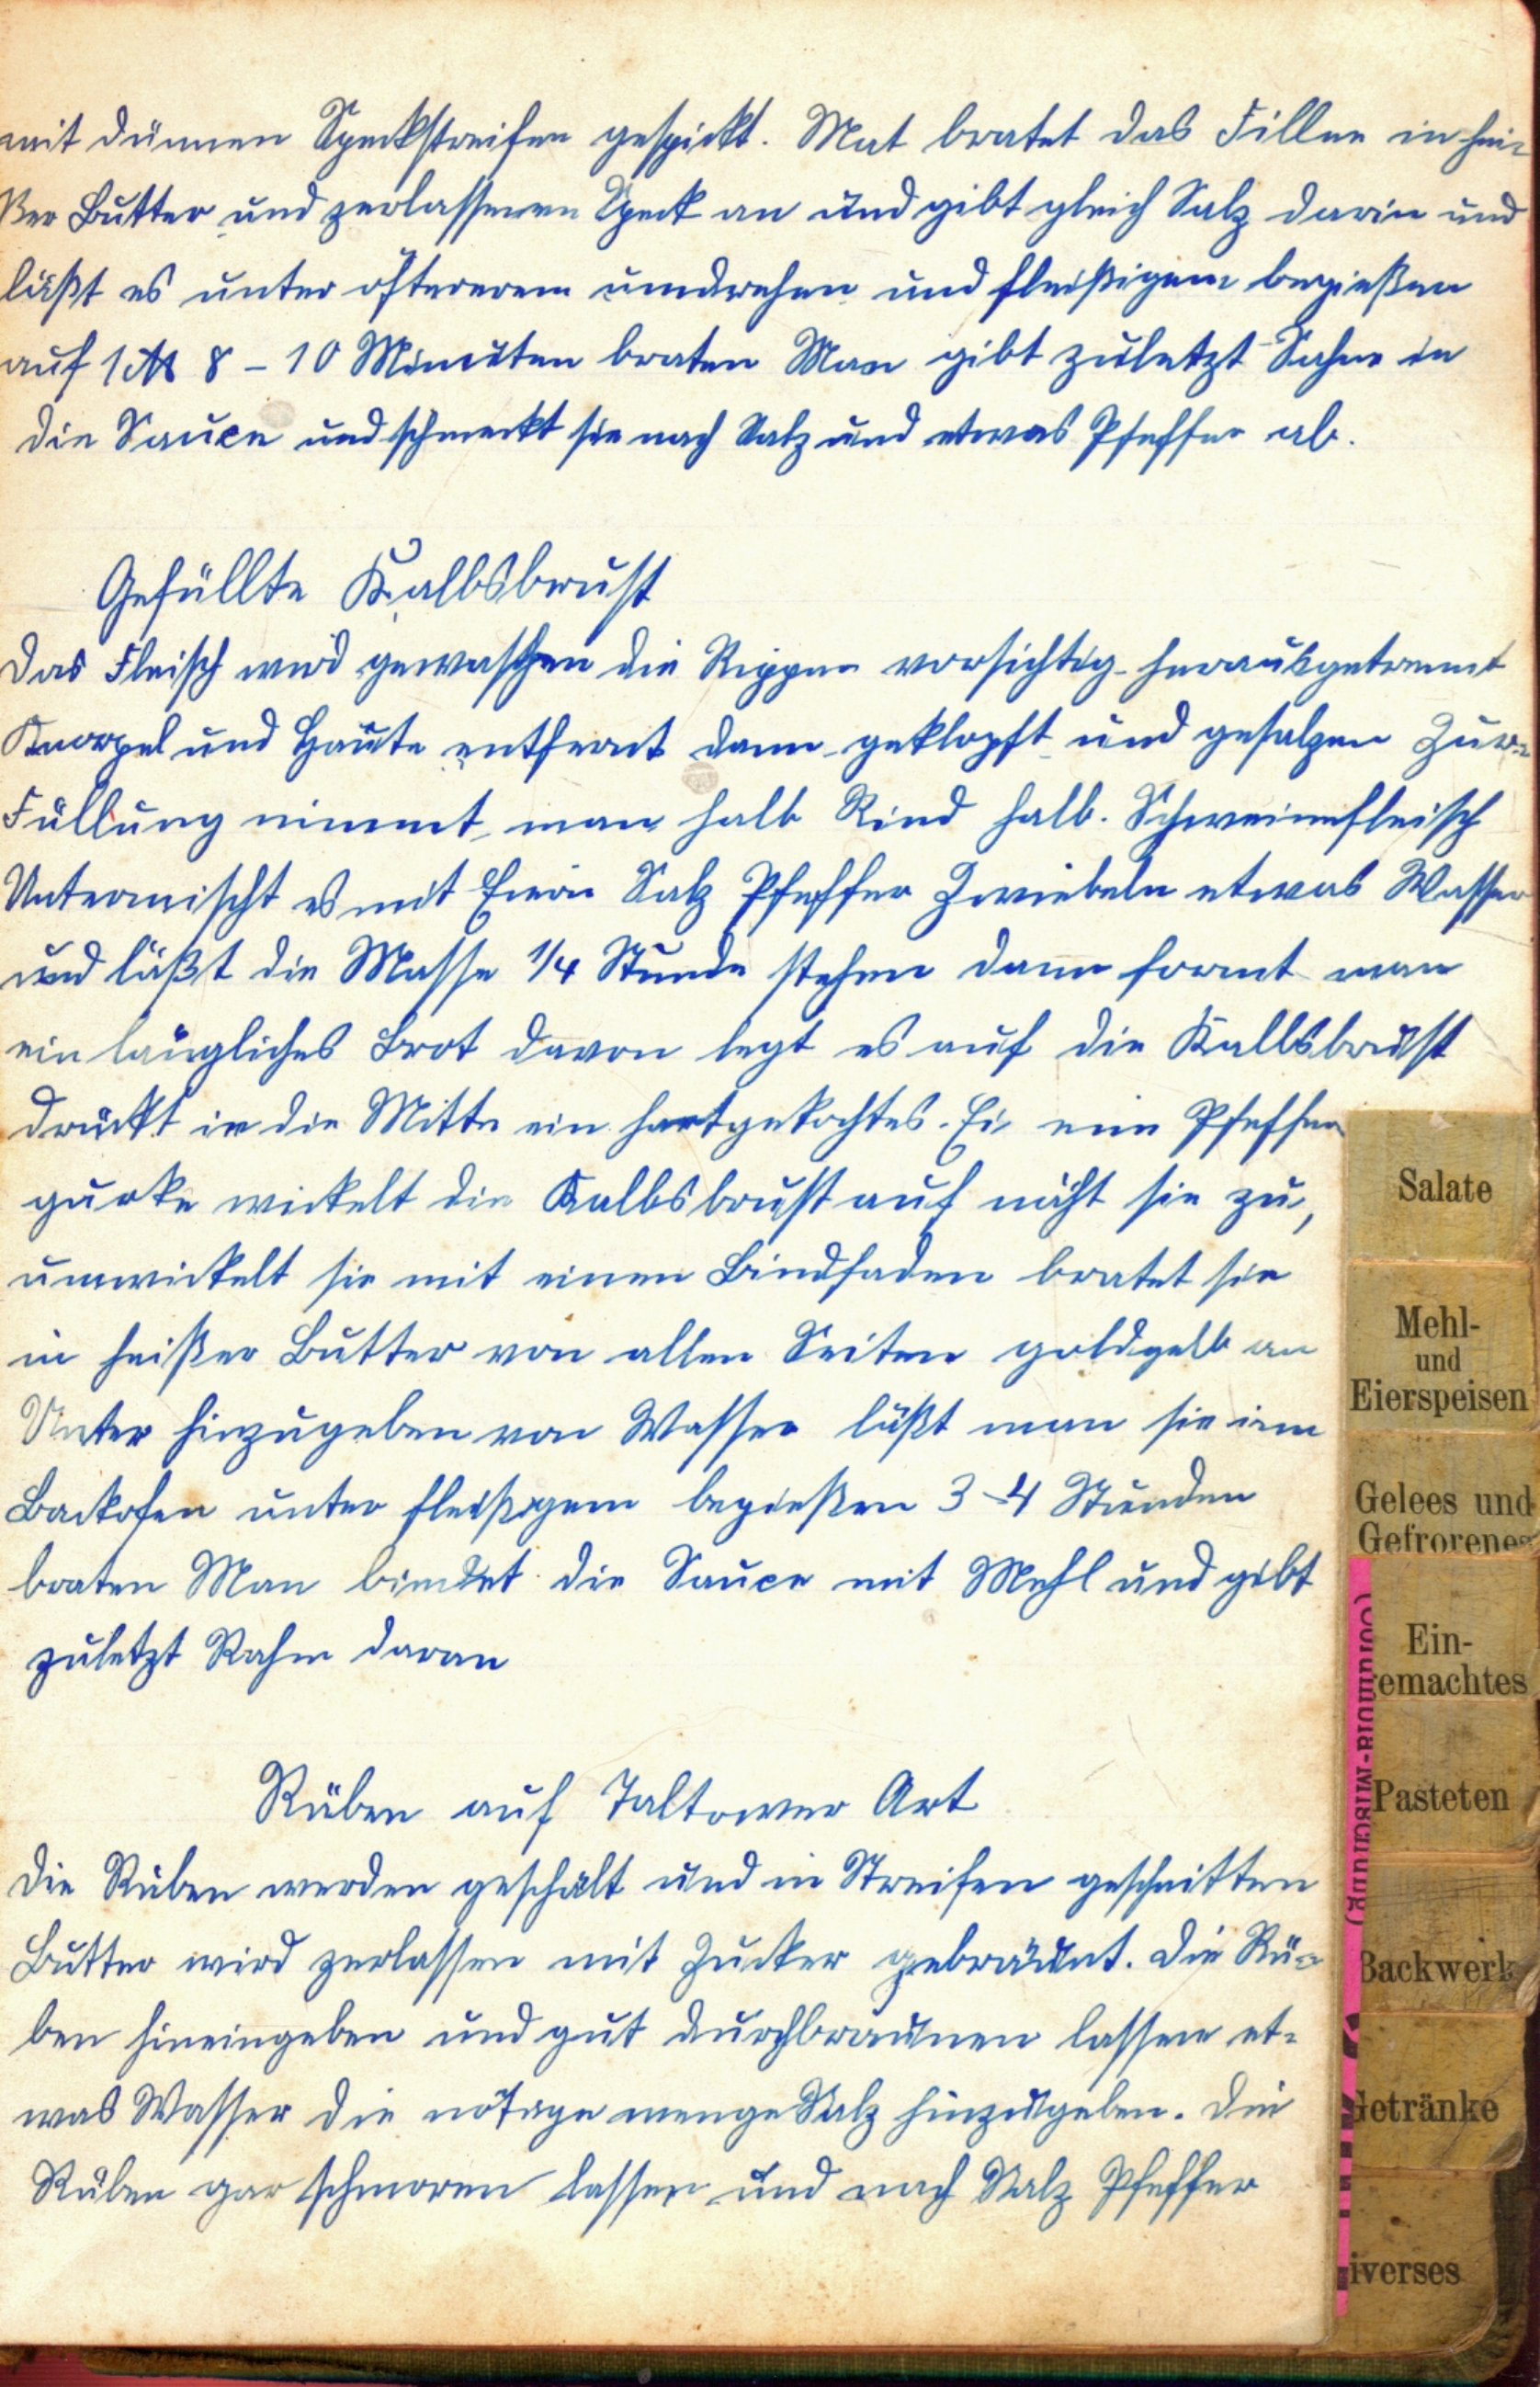 mit dünnen Speckstreifen gespickt. Mat bratet das Fillee in hei-
ßer Butter und zerlassenen Speck an und gibt gleich Salz darin und
läßt es unter öftererem umdrehen und fleißigem begießen
auf 1 ℔ 8 - 10 Minuten braten Man gibt zuletzt Sahne in
die Sauce und schmeckt sie nach Salz und etwas Pfeffer ab.
Gefüllte Kalbsbrust
Das Fleisch wird gewaschen die Rippen vorsichtig herausgetrennt
Knorpel und Häute entfernt dann geklopft und gesalzen Zur-
Füllung nimmt man halb Rind halb. Schweinefleisch
Untermischt es mit Salz Pfeffer Zwiebeln etwas Wasser
und läßt die Masse 1/4 Stunde stehen dann formt man
ein längliches Brot davon legt es auf die Kallbsbrust
drückt in die Mitte ein hartgekochtes. Ei eine Pfeffer
gurke wickelt die Kalbsbrust auf näht sie zu,
umwickelt sie mit einen Bindfaden bratet sie
in heißer Butter von allen Seiten goldgelb an
Unter hinzugeben von Wasser läßt man sie im
Backofen unter fleißigem begießen 3-4 Stunden
braten Man bindet die Sauce mit Mehl und gibt
zuletzt Rahm daran
Rüben auf Taltower Art
Die Rüben werden geschält und in Streifen geschnitten
Butter wird zerlassen mit Zucker gebräunt. Die Rü-
ben hineingeben und gut durchbräunen lassen et-
was Wasser die nötige menge Salz hinzugeben. Die
Rüben gar schmoren lassen und nach Salz Pfeffer
Salate
Mehl-
und
Eierspeisen
Gelees und
Gefrorenes
Ein-
gemachtes
Pasteten
Backwerk
Getränke
iverses